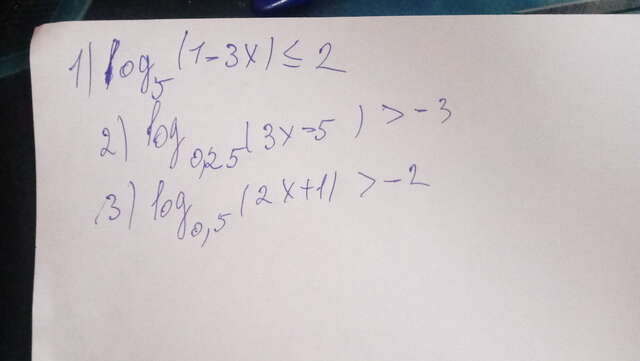 1) log₅ (1-3x) ≤ 2
2) log₀,₂₅ (3x-5) > -3
3) log₀,₅ (2x+1) > -2